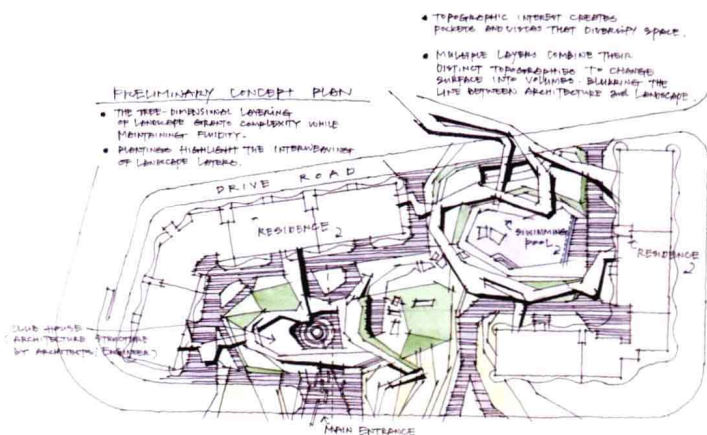 • TOPOGRAPHIC INTEREST CREATES
POCKETS AND VISTAS THAT DIVERSIFY SPACE.
• MULTIPLE LAYERS COMBINE THEIR
DISTINCT TOPOGRAPHIES TO CHANGE
SURFACE INTO VOLUMES. BLURRING THE
LINE BETWEEN ARCHITECTURE and LANDSCAPE.
PRELIMINARY CONCEPT PLAN
• THE TREE-DIMENSIONAL LAYERING
OF LANDSCAPE GRANTS COMPLEXITY WHILE
MAINTAINING FLUIDITY.
• PLANTINGS HIGHLIGHT THE INTERWEAVING
OF LANDSCAPE LAYERS.
DRIVE ROAD
RESIDENCE
SWIMMING
POOL
RESIDENCE
CLUB HOUSE
(ARCHITECTURE STRUCTURE
BY ARCHITECTS/ENGINEER)
MAIN ENTRANCE